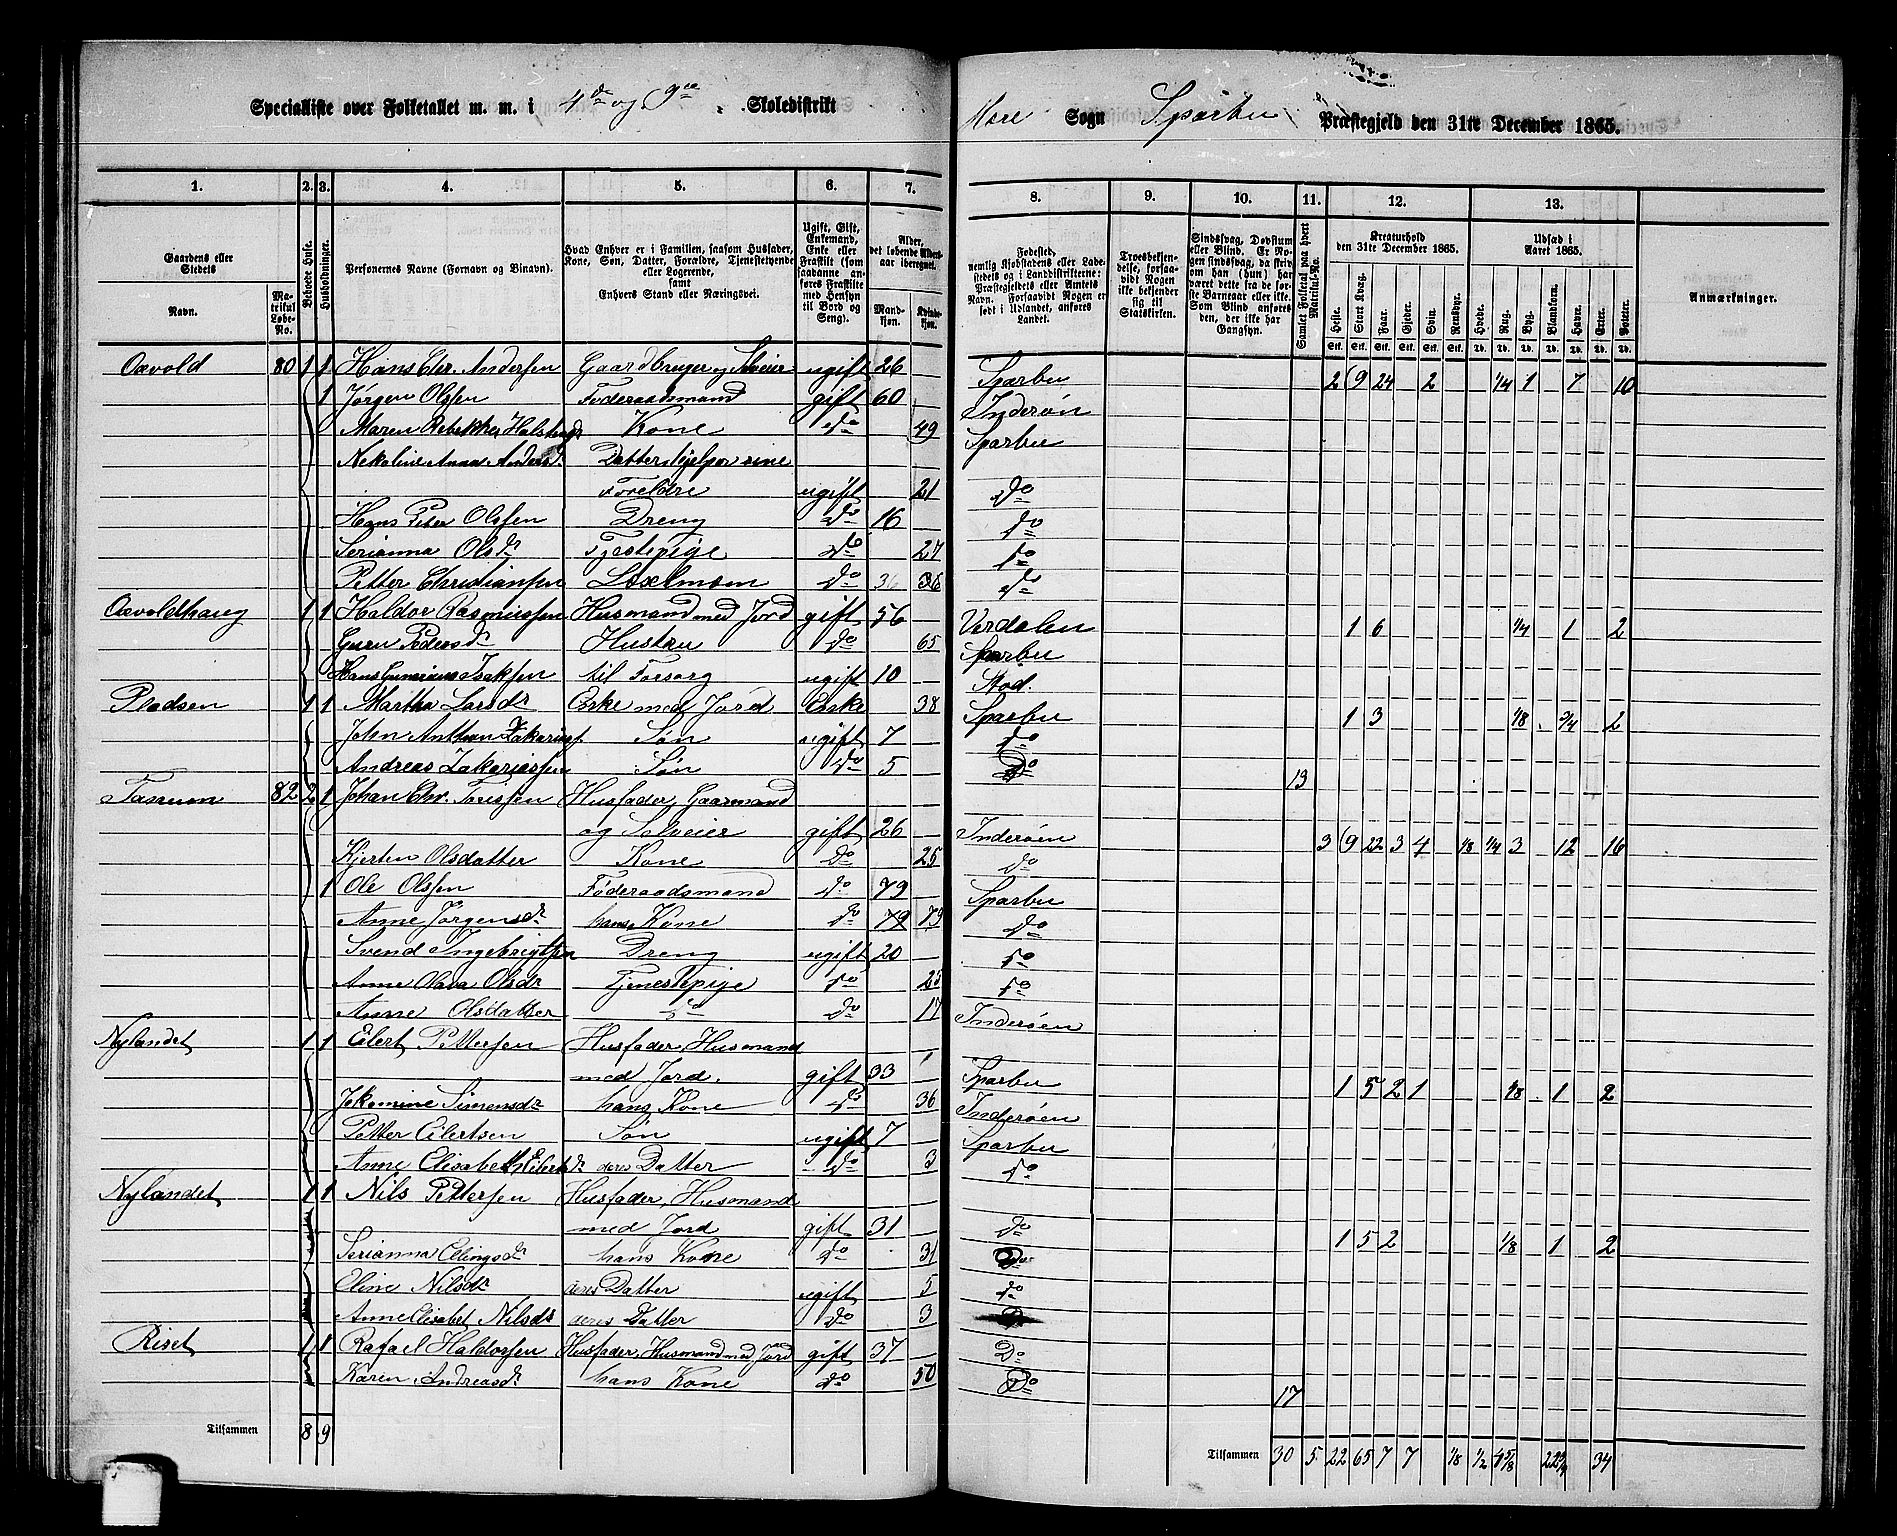 Specialliste over Folketallet m. m. i 4de og 9de Skoledistrikt
Mære Sogn Sparbu Præstegjeld den 31te December 1865.
1. 2. 3. 4. 5. 6. 7.
8. 9. 10. 11. 12. 13.
Gaardens eller Stedets
Navn.
Matrikul Løbe-No.
Beboede Huse.
Husholdninger.
Personernes Navne (Fornavn og Binavn).
Hvad Enhver er i Familien, saasom Husfader, Kone, Søn, Datter, Forældre, Tjenestetyende eller Logerende, samt Enhvers Stand eller Næringsvei.
Ugift, Gift, Enkemand, Enke eller Fraskilt (som saadanne anføres Fraskilte med Hensyn til Bord og Seng).
Alder, det løbende Aldersaar iberegnet.
Mandkjøn.
Kvindekjøn.
Fødested, nemlig Kjøbstadens eller Ladestedets eller i Landdistrikterne: Præstegjeldets eller Amtets Navn. Forsaavidt Nogen er født i Udlandet, anføres Landet.
Troesbekjendelse, forsaavidt Nogen ikke bekjender sig til Statskirken.
Sindssvag, Døvstum eller Blind. Er Nogen sindssvag, da skriv om han (hun) har været dette fra de første Barneaar eller ikke. Som Blind anføres den, der ikke har Gangsyn.
Samlet Folketal paa hvert Matrikul-No.
Kreaturhold den 31te December 1865.
Heste. Stort Kvæg. Faar. Gjeder. Svin. Rensdyr.
Udsæd i Aaret 1865.
Hvede. Rug. Byg. Blandkorn. Havre. Erter. Poteter.
Anmærkninger.
Oxvold 80 1 1 Hans Chr. Andersen Gaardbruger og Selveier ugift 26 Sparbu 2 9 24 2 1/4 1 7 10
1 Jørgen Olsen Føderaadsmand gift 60 Inderøn
Maren Rebekka Halstensdr Kone do 49 Sparbu
Nekoline Anna Andersdr Datter hjelper sine
Foreldre ugift 21 do
Hans Peter Olssen Dreng do 16 do
Serianna Olsdr Tjestepige do 27 do
Petter Christiansen Loselmæn do 36 36 do
Oxvoldhaug 1 1 Haldor Rasmussen Husmand med Jord gift 56 Verdalen 1 6 1/4 1 2
Guru Pedersdr Hustru do 65 Sparbu
Hans Gunerius Isaksen til Forsorg ugift 10 Stod.
Pladsen 1 1 Martha Larsdr Enke med Jord Enke 38 Sparbu 1 3 1/8 3/4 2
John Anthon Zakariasf Søn ugift 7 do
Andreas Zakariassen Søn do 5 do 13
Tanum 82 2 1 Johan Chr. Torissen Husfader, Gaarmand
og Selveier gift 26 Inderøen 3 9 22 3 4 1/8 1/4 3 12 16
Kjersten Olsdatter Kone do 25 do
1 Ole Olssen Føderaadsmand do 79 Sparbu
Anne Jørgensdr hans Kone do 79 79 do
Svend Ingebrigtsen Dreng ugift 20 do
Anne Olava Olsdr Tjenestepige do 25 do
Anne Olsdatter do do 17 Inderøen
Nylandet 1 1 Eilert Pettersen Husfader, Husmand
med Jord. gift 33 Sparbu 1 5 2 1 1/8 1 2
Jokomine Simensdr hans Kone do 36 Inderøen
Petter Eilertsen Søn ugift 7 Sparbu
Anne Elisabeth Eilertsdr deres Datter do 3 do
Nylandet 1 1 Nils Pettersen Husfader, Husmand
med Jord gift 31 do 1 5 2 1/8 1 2
Serianna Ellingsdr hans Kone do 31 do
Eline Nilsdr deres Datter ugift 5 do
Anne Elisabet Nilsdr deres Datter do 3 do
Riset 1 1 Rafael Haldorsen Husfader, Husmand med Jord gift 37 Do
Karen Andreasdr hans Kone do 50 Do 17
Tilsammen 8 9
Tilsammen 30 5 22 65 7 7 1/8 1/2 4 5/8 22 3/4 34